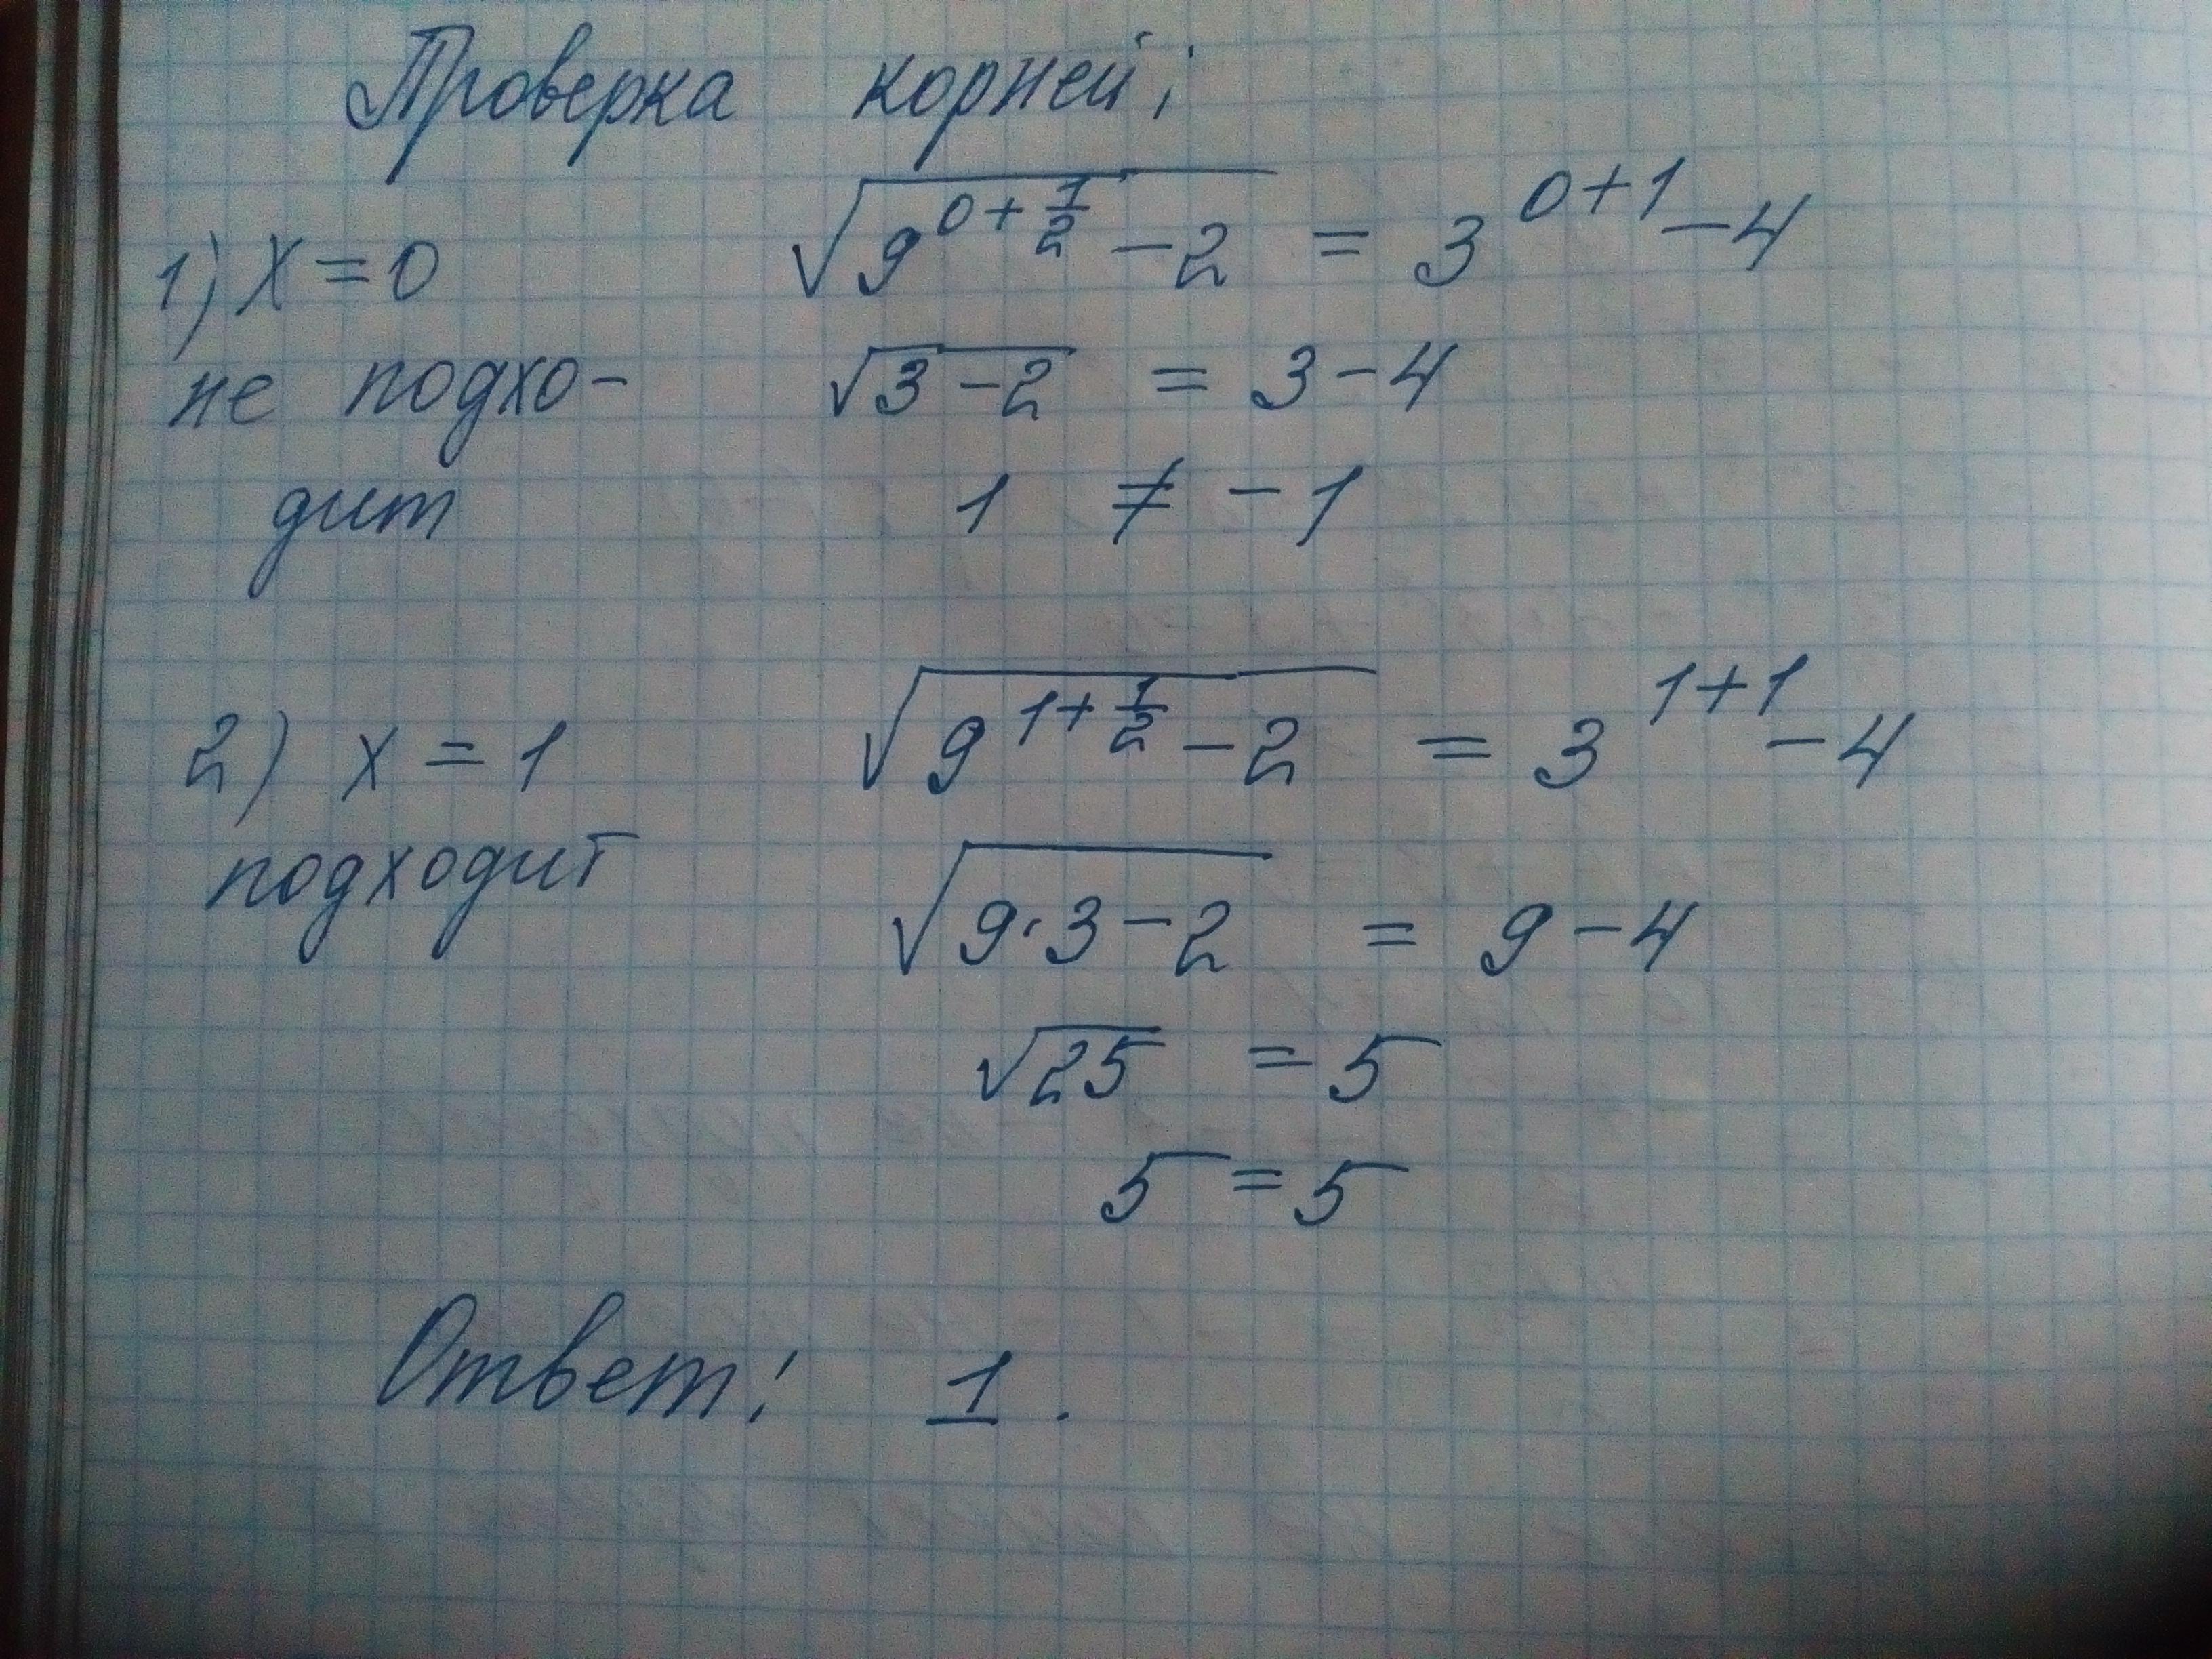 Проверка корней:
1) x = 0 √(9^(0+1/2) - 2) = 3^(0+1) - 4
не подхо- √(3-2) = 3-4
дит 1 ≠ -1
2) x = 1 √(9^(1+1/2) - 2) = 3^(1+1) - 4
подходит √(9·3-2) = 9-4
√25 = 5
5 = 5
Ответ: 1.